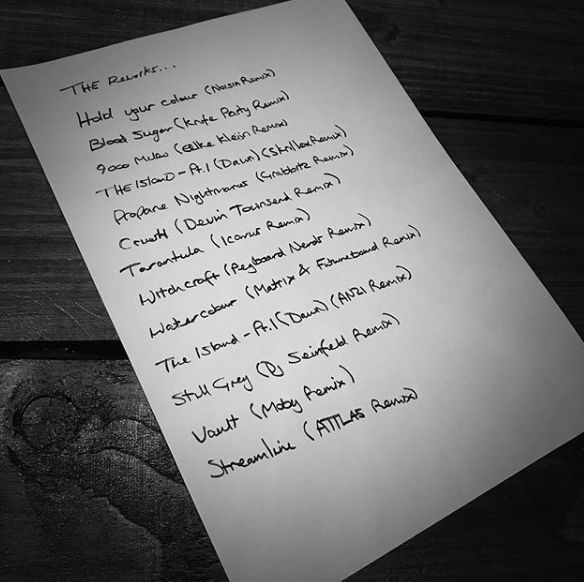 THE Reworks...
Hold your colour (Noisia Remix)
Blood Sugar (Knife Party Remix)
9000 Miles (Eelke Kleijn Remix)
THE ISLAND - Pt.1 (Dawn) (Skrillex Remix)
Propane Nightmares (Grabbitz Remix)
Crush (Devin Townsend Remix)
Tarantula (Icarus Remix)
Witchcraft (Pegboard Nerds Remix)
Watercolour (Matrix & Futurebound Remix)
The Island - Pt.1 (Dawn) (ANZI Remix)
Still Grey (DJ Seinfeld Remix)
Vault (Moby Remix)
Streamline (ATTLAS Remix)